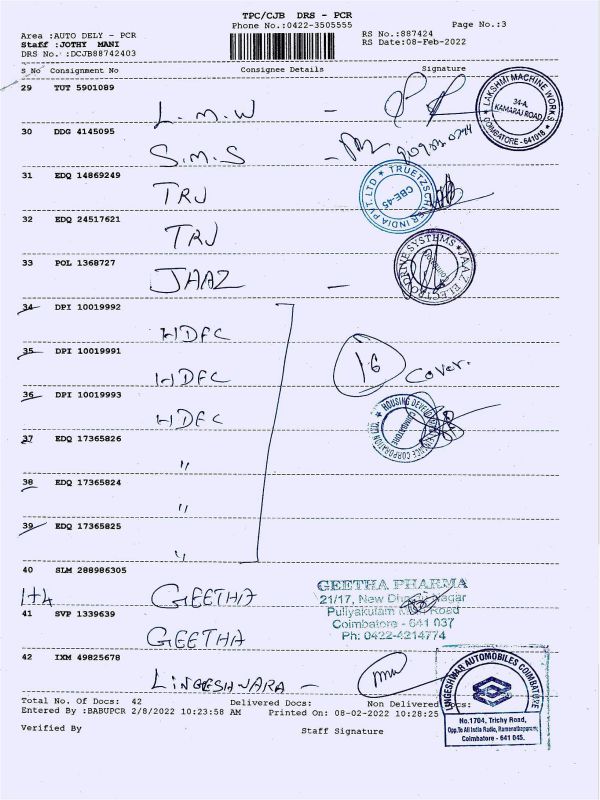 TPC/CJB DRS - PCR
Phone No.:0422-3505555
Page No.:3
Area :AUTO DELY - PCR
RS No.:887424
Staff :JOTHY MANI
RS Date:08-Feb-2022
DRS No. :DCJB88742403
S_No Consignment No Consignee Details Signature
29 TUT 5901089
L.M.W -
LAKSHMI MACHINE WORKS
34-A,
KAMARAJ ROAD
COIMBATORE - 641018
30 DDG 4145095
S.M.S -
31 EDQ 14869249
TRJ
TRUETZSCHLER INDIA PVT. LTD
CBE-45
32 EDQ 24517621
TRJ
33 POL 1368727
JAAZ -
J.A.A.Z ELECTRO DRIVE SYSTEMS
34 DPI 10019992
HDFC
35 DPI 10019991
HDFC
16 Cover.
36 DPI 10019993
HDFC
HOUSING DEVELOPMENT FINANCE CORPORATION LTD.
COIMBATORE
37 EDQ 17365826
"
38 EDQ 17365824
"
39 EDQ 17365825
"
40 SLM 288986305
1+4 GEETHA
GEETHA PHARMA
21/17, New Nagar
Puliyakulam Road
Coimbatore - 641 037
Ph: 0422-4214774
41 SVP 1339639
GEETHA
42 IXM 49825678
LINGESHWARA -
LINGESHWAR AUTOMOBILES COIMBATORE
No.1704, Trichy Road,
Opp.To All India Radio, Ramanathapuram,
Coimbatore - 641 045.
Total No. Of Docs: 42 Delivered Docs: Non Delivered Docs:
Entered By :BABUPCR 2/8/2022 10:23:58 AM Printed On: 08-02-2022 10:28:25
Verified By Staff Signature